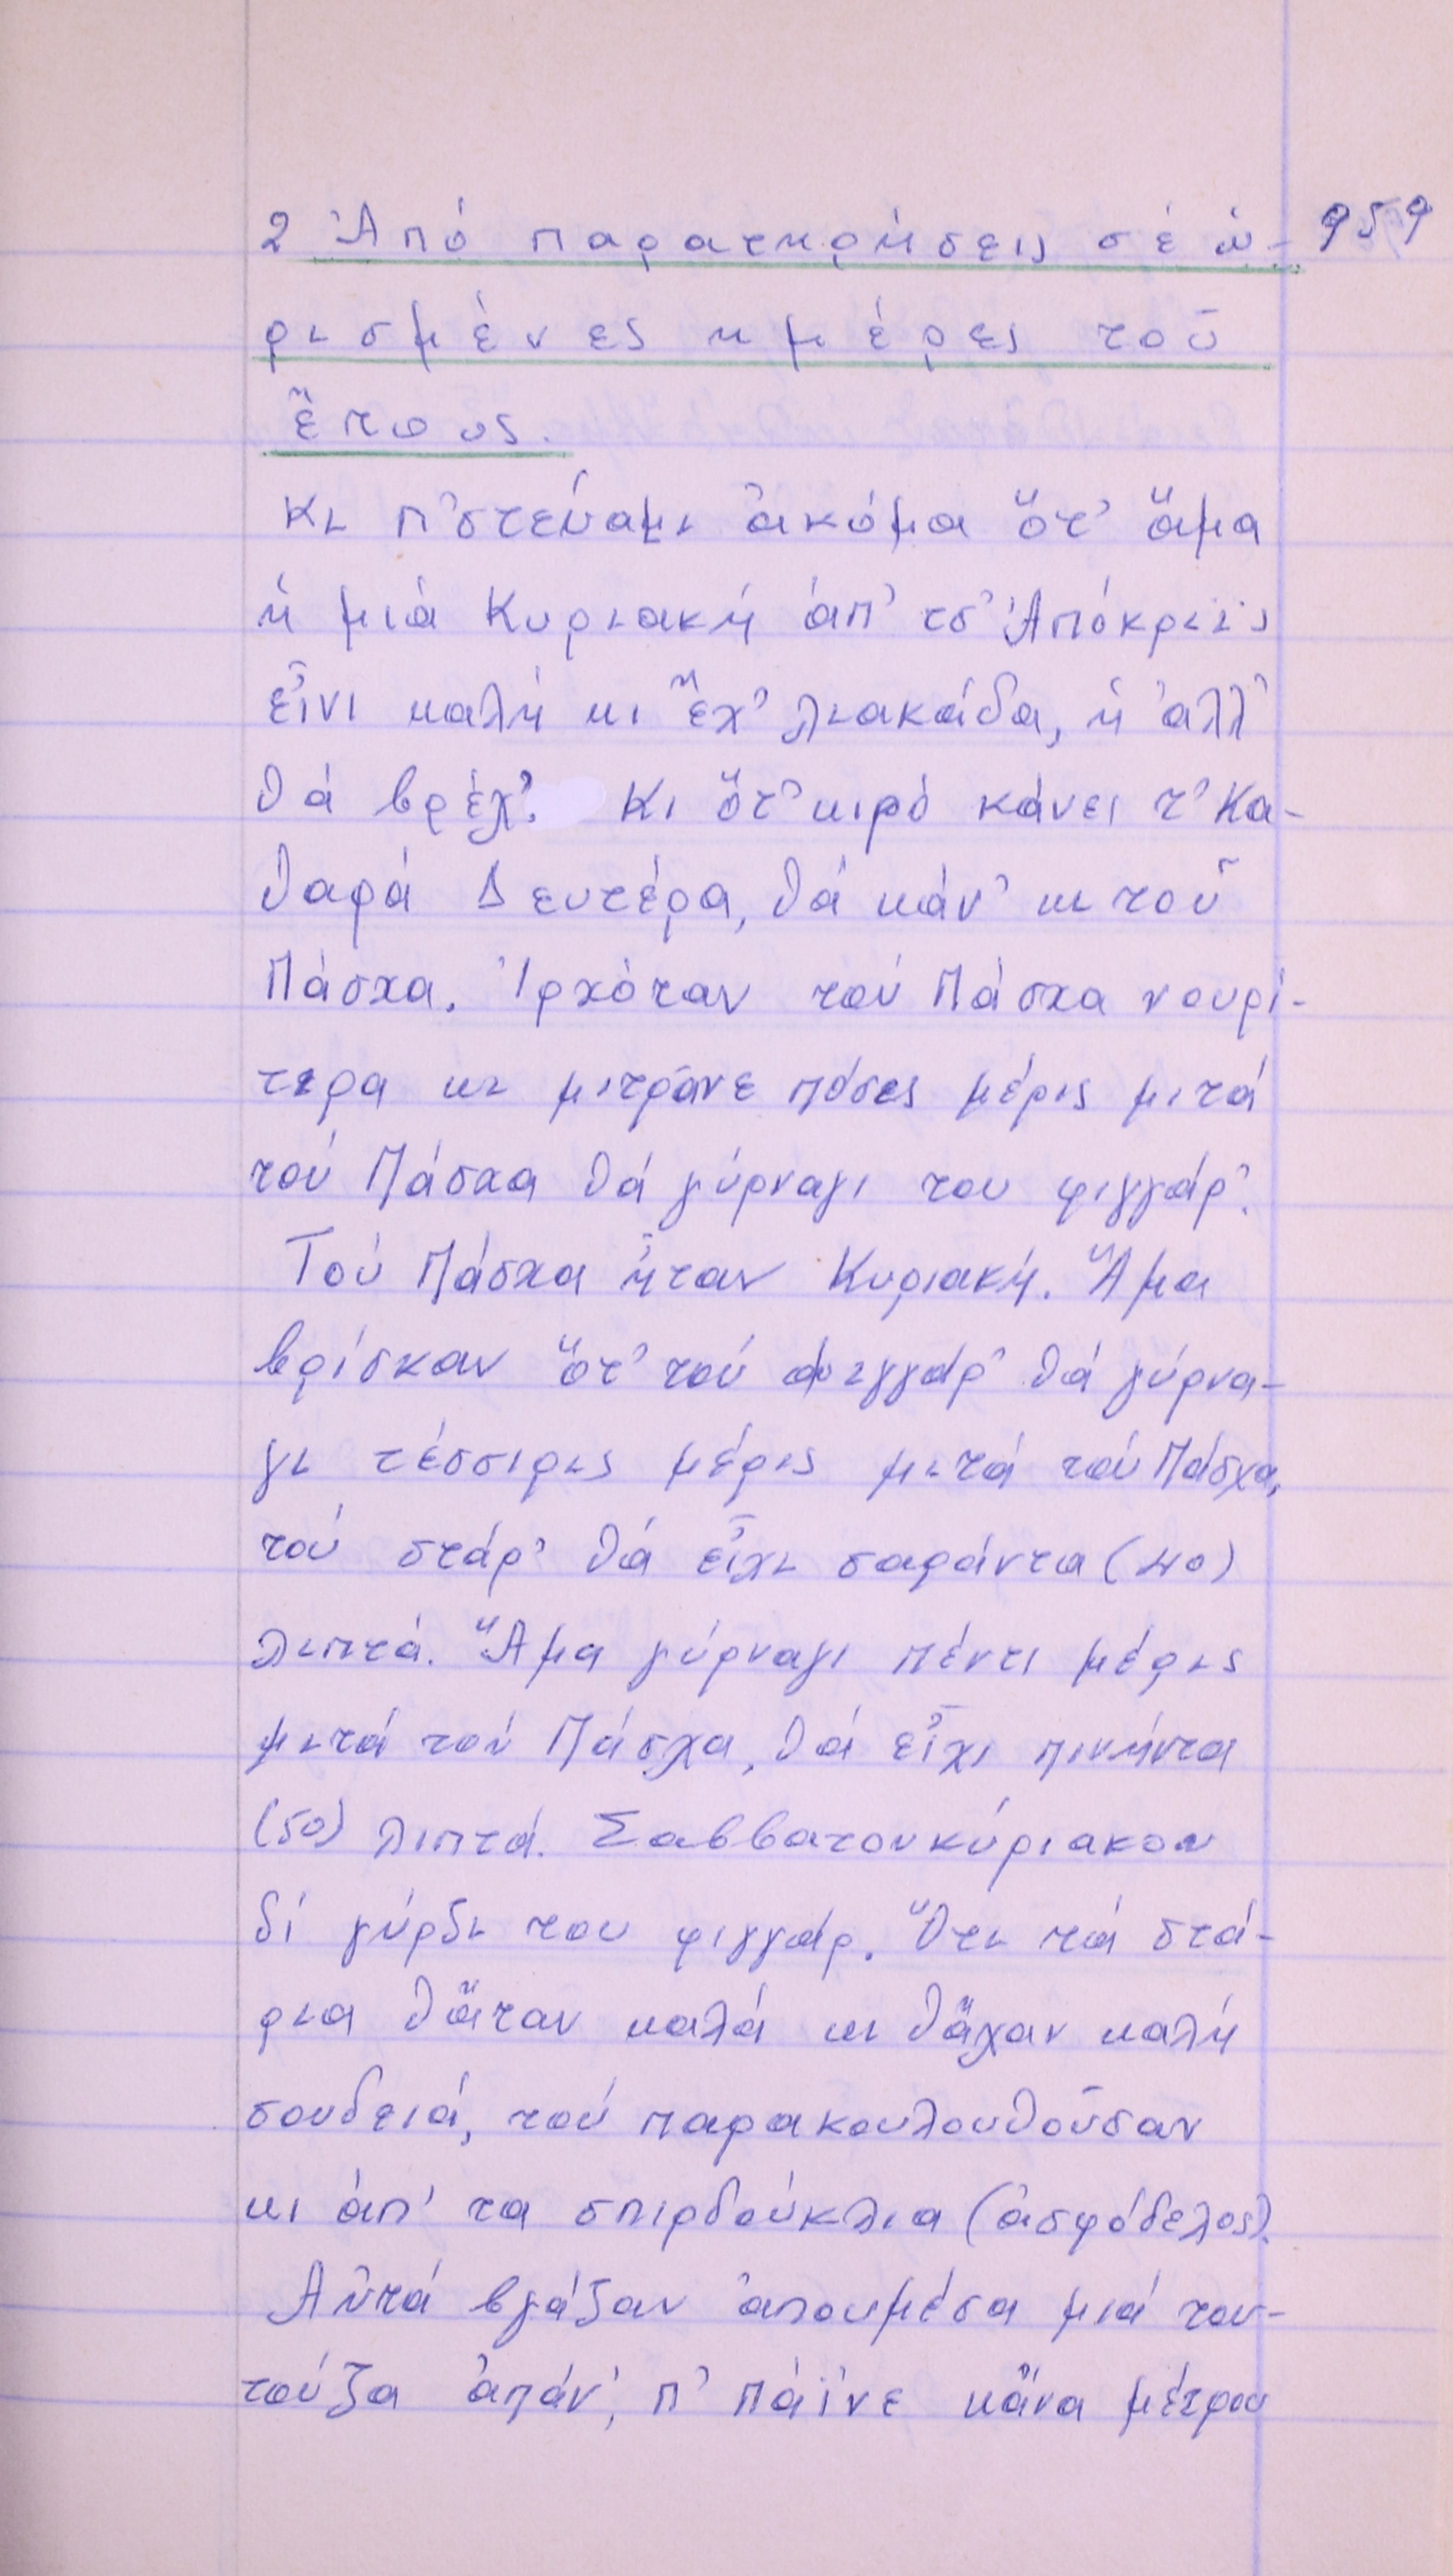 2 Ἀπό παρατηρήσεις σέ ὡ- 959
ρισμένες ἡμέρες τοῦ
ἔτους.
Κι π'στεύαμι ἀκόμα ὅτ' ἅμα
ἡ μιά Κυριακή ἀπ' τσ' Ἀπόκριις
εἶνι καλή κι ἔχ' λιακάδα, ἡ ἀλλ'
θά βρέχ'. Κι ὅτ' κιρό κάνει τ' Κα-
θαρά Δευτέρα, θά κάν' κι τοῦ
Πάσχα. Ἰρχόταν τού Πάσχα νουρί-
τερα κι μιτρᾶνε πόσες μέρις μιτά
τού Πάσχα θά γύρναγι του φιγγάρ'.
Τού Πάσχα ἦταν Κυριακή. Ἅμα
βρίσκαν ὅτ' τού φιγγάρ' θά γύρνα-
γι τέσσιρις μέρις μιτά τού Πάσχα,
τού στάρ' θά εἶχι σαράντα (40)
λιπτά. Ἅμα γύρναγι πέντι μέρις
μιτά τού Πάσχα, θά εἶχι πινήντα
(50) λιπτά. Σαββατουκύριακου
δί γύρζι του φιγγάρ. Ὅτι τά στά-
ρια θἄταν καλά κι θἄχαν καλή
σουδειά, τού παρακουλουθοῦσαν
κι ἀπ' τα σπιρδούκλια (ἀσφόδελος).
Αὐτά βγάζαν ἀπουμέσα μιά του-
τούζα ἀπάν', π' πάϊνε κἄνα μέτρου